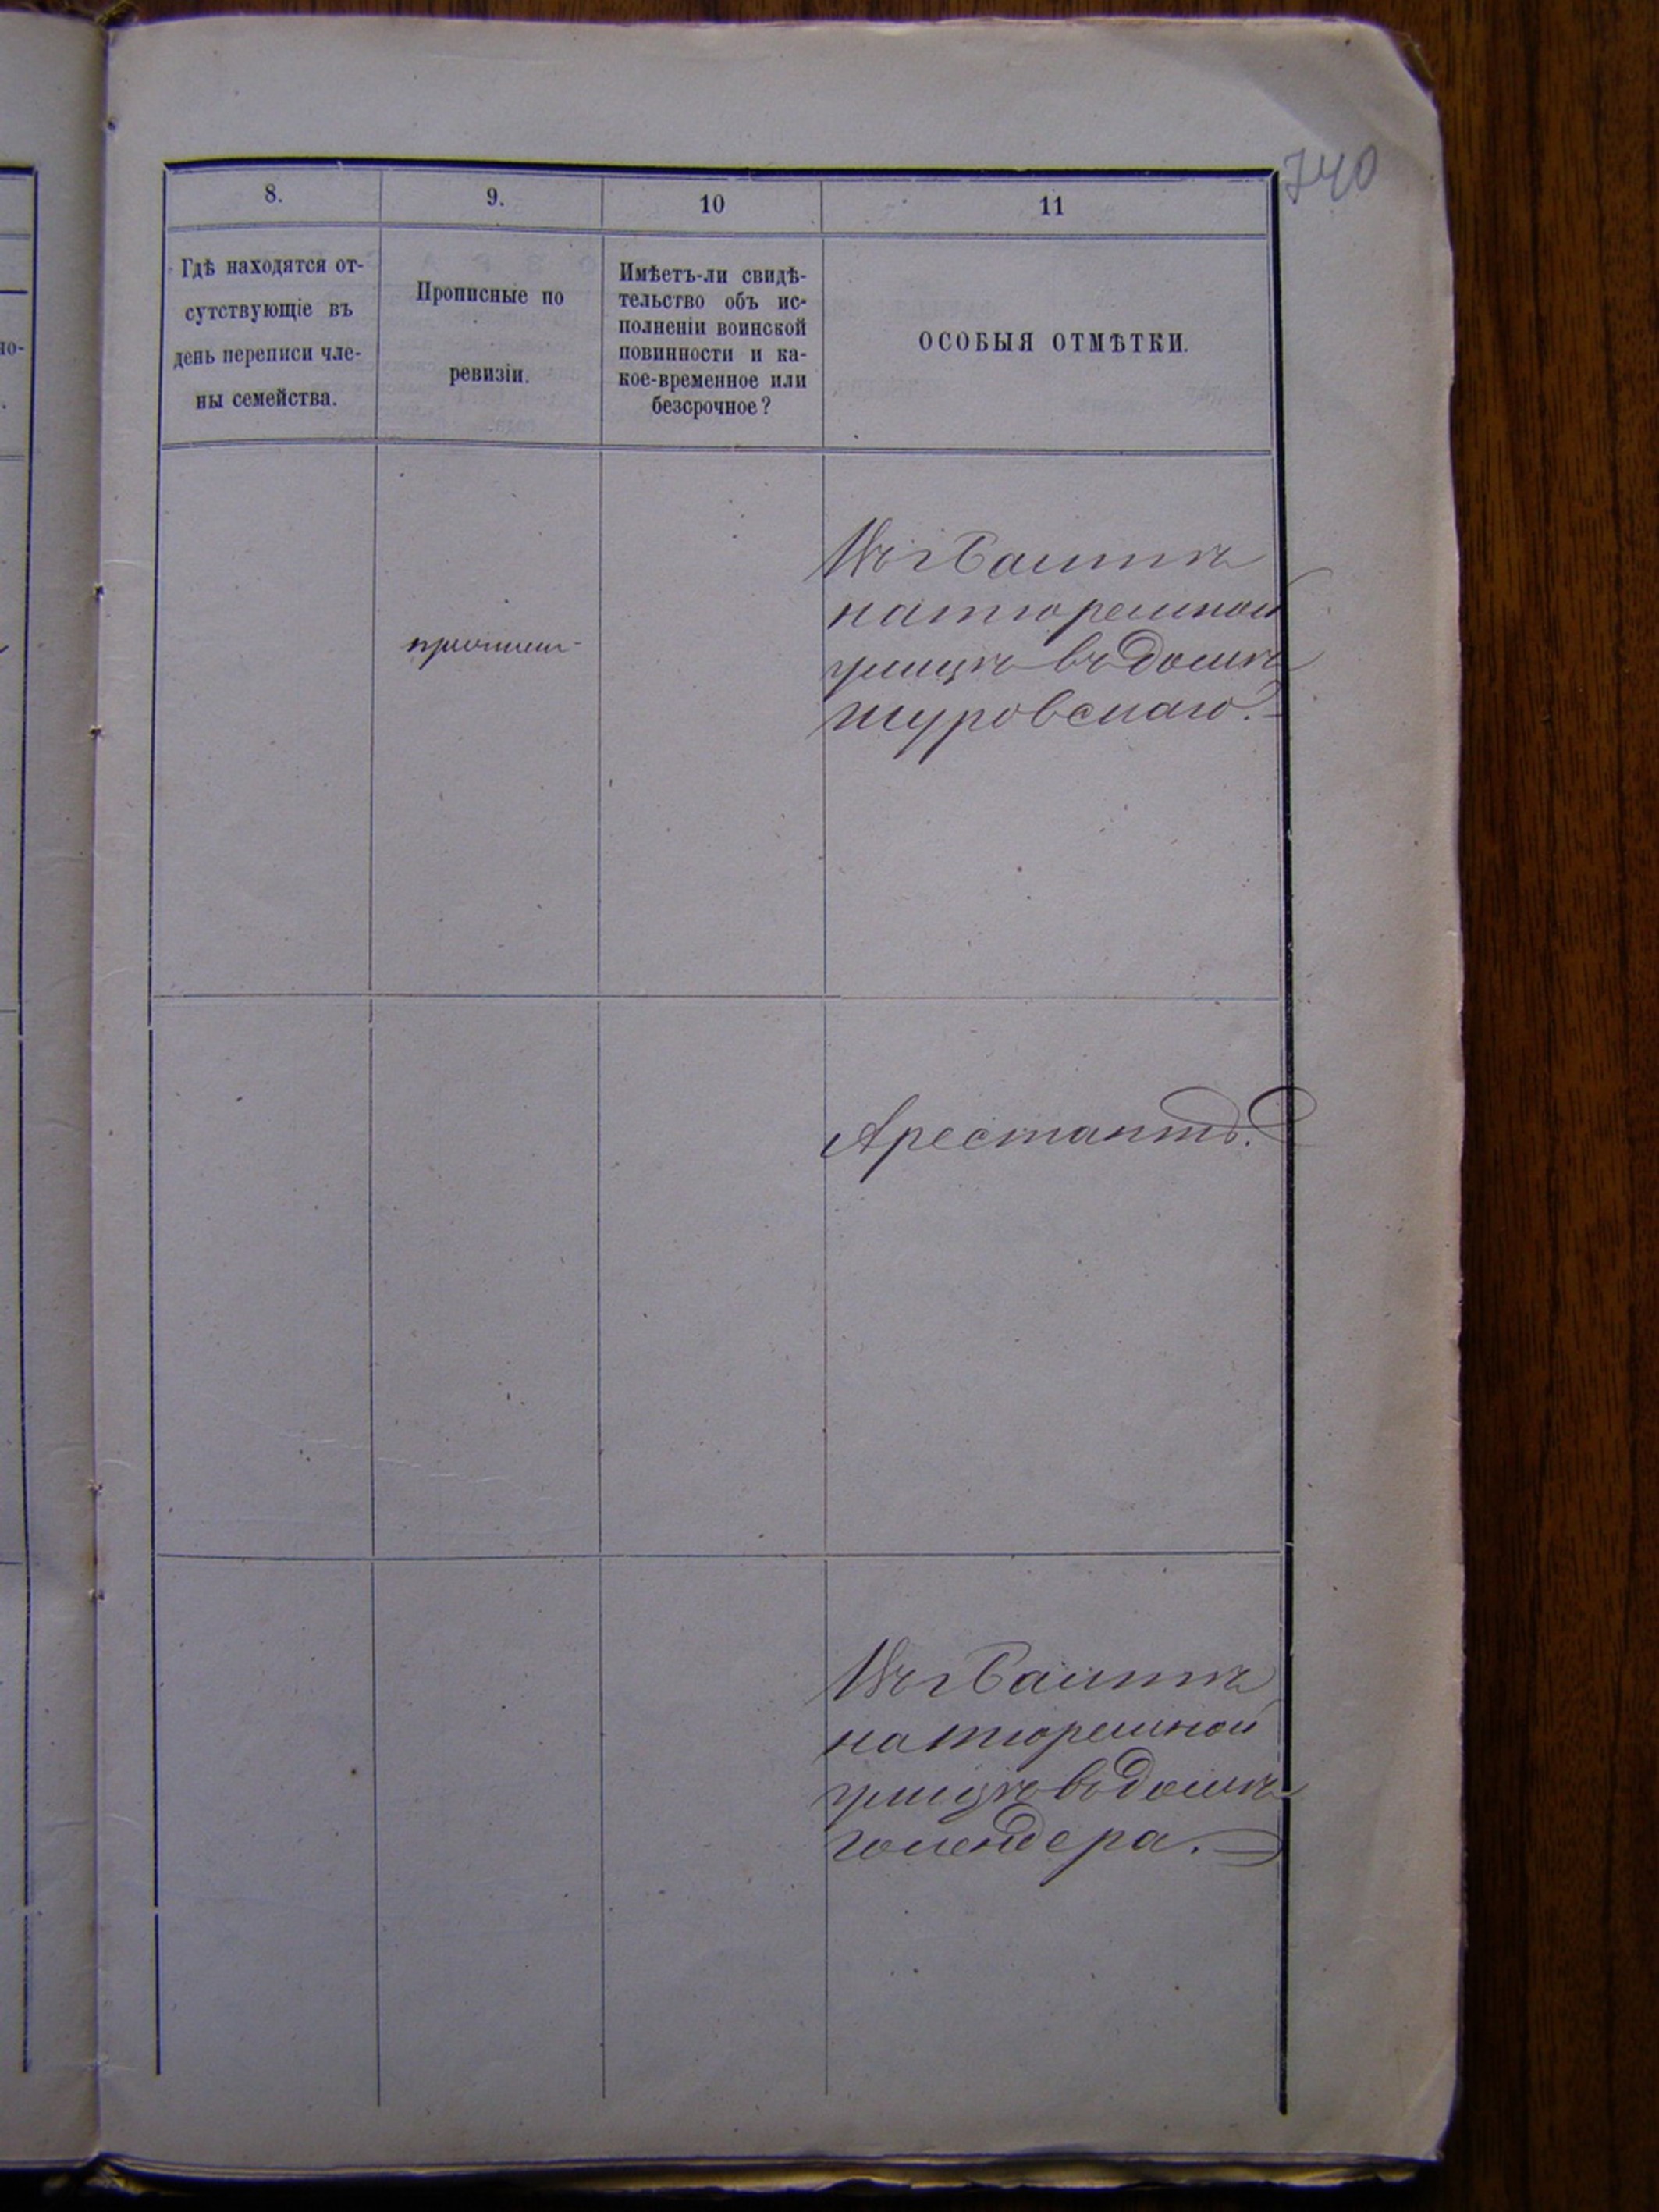 740
8.
9.
10
11
Гдѣ находятся от-
сутствующіе въ
день переписи чле-
ны семейства.
Прописные по
ревизіи.
Имѣетъ-ли свидѣ-
тельство объ ис-
полненіи воинской
повинности и ка-
кое-временное или
безсрочное?
ОСОБЫЯ ОТМѢТКИ.
но-
Въ г Балтѣ
на тюремной
улицѣ въ домѣ
Шуровскаго.
Арестантъ.
Въ г Балтѣ
на тюремной
улицѣ въ домѣ